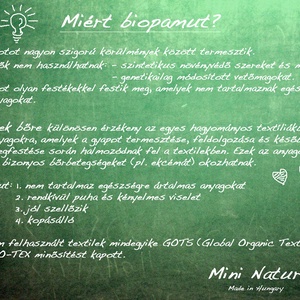 Miért biopamut?
nagyon szigorú körülmények között termesztik.
nem használhatnak: - szintetikus növényvédő szereket és m
- genetikailag módosított vetőmagokat.
olyan festékekkel festik meg, amelyek nem tartalmaznak egés
yagokat.
ek bőre különösen érzékeny az egyes hagyományos textíliák
yagokra, amelyek a gyapot termesztése, feldolgozása és késő
egfestése során halmozódnak fel a textilekben. Ezek az anyag
bizonyos bőrbetegségeket (pl. ekcémát) okozhatnak.
ut: 1. nem tartalmaz egészségre ártalmas anyagokat
2. rendkívül puha és kényelmes viselet
3. jól szellőzik
4. kopásálló
felhasznált textilek mindegyike GOTS (Global Organic Text
O-TEX minősítést kapott.
Mini Natur
Made in Hungary